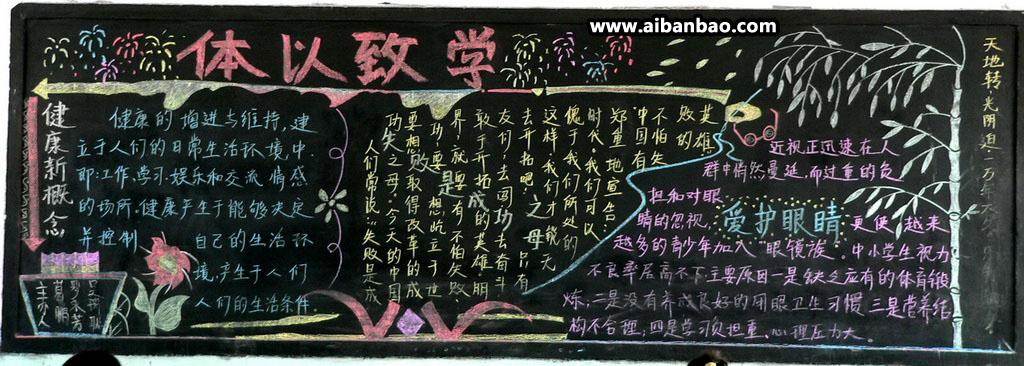 www.aibanbao.com
体以致学
健康新概念
健康的增进与维持,建
立于人们的日常生活环境,中.
即:工作.学习.娱乐和交流情感
的场所.健康产生于能够决定
并控制 自己的生活环
境,产生于人们
人们的生活条件.
失败是成功之母
人们常说:"失败是成
功之母."今天的中国
要想取得改革的成
功,要想屹立于世
界,就要有不怕失败,
敢于开拓的英雄.朋
友们,去闯去奋斗
去开拓吧!只有
这样,我们才能无
愧于我们所处的
时代,我们可以
郑重地宣告
中国有
不怕失
败的
英雄
爱护眼睛
近视正迅速在人
群中悄然蔓延,而过重的负
担和对眼
睛的忽视, 更使越来
越多的青少年加入"眼镜族".中小学生视力
不良率居高不下主要原因一是缺乏应有的体育锻
炼,二是没有养成良好的用眼卫生习惯三是营养结
构不合理,四是学习负担重、心理压力大。
天地转,光阴迫.一万年太久
主办人